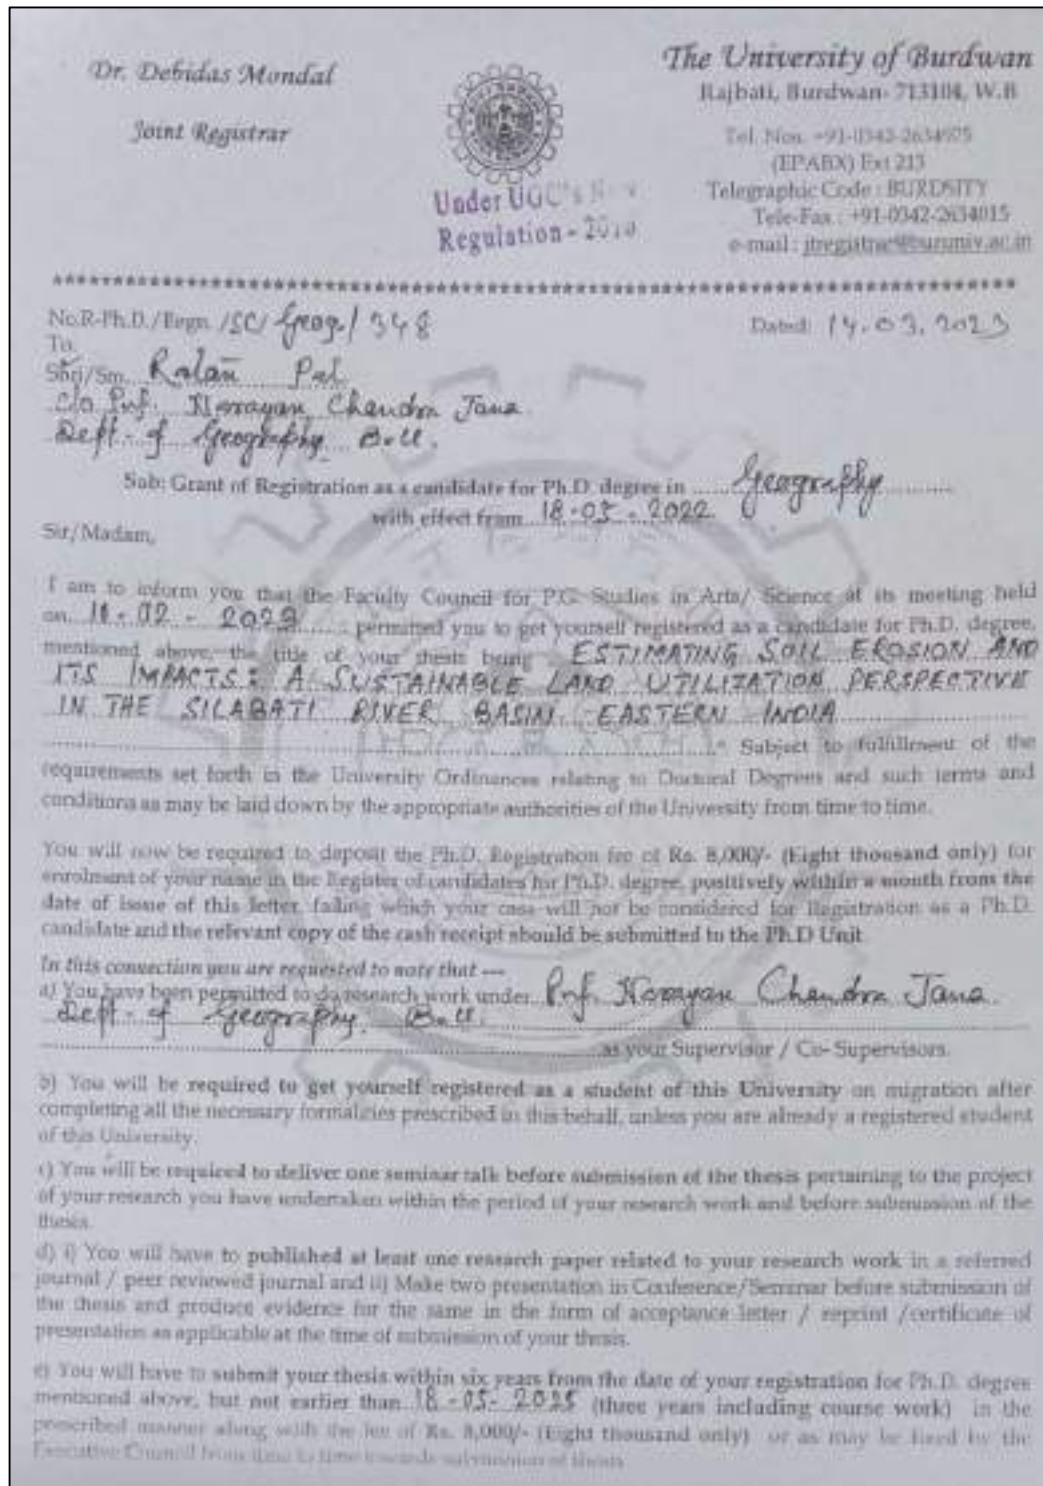 Dr. Debidas Mondal
Joint Registrar
The University of Burdwan
Rajbati, Burdwan- 713104, W.B
Tel. Nos. +91-0342-2634975
(EPABX) Ext 213
Telegraphic Code : BURDSITY
Tele-Fax : +91-0342-2634015
e-mail : jtregistrar@buruniv.ac.in
Under UGC's
Regulation -
No.R-Ph.D./Regn. /SC/ Geog./ 348
Dated: 14.03.2023
To,
Shri/Sm. Ratan Pal
C/o Prof. Narayan Chandra Jana
Dept. of Geography B.U.
Sub: Grant of Registration as a candidate for Ph.D. degree in ...... Geography ............
with effect from 18-05-2022
Sir/Madam,
I am to inform you that the Faculty Council for P.G. Studies in Arts/ Science at its meeting held
on 02 - 2023 permitted you to get yourself registered as a candidate for Ph.D. degree,
mentioned above, the title of your thesis being ESTIMATING SOIL EROSION AND
ITS IMPACTS: A SUSTAINABLE LAND UTILIZATION PERSPECTIVE
IN THE SILABATI RIVER BASIN EASTERN INDIA
Subject to fulfillment of the
requirements set forth in the University Ordinances relating to Doctoral Degrees and such terms and
conditions as may be laid down by the appropriate authorities of the University from time to time.
You will now be required to deposit the Ph.D. Registration fee of Rs. 8,000/- (Eight thousand only) for
enrolment of your name in the Register of candidates for Ph.D. degree, positively within a month from the
date of issue of this letter, failing which your case will not be considered for Registration as a Ph.D.
candidate and the relevant copy of the cash receipt should be submitted to the Ph.D Unit
In this connection you are requested to note that ---
a) You have been permitted to do research work under Prof. Narayan Chandra Jana.
Dept. of Geography. B.U.
as your Supervisor / Co- Supervisors.
b) You will be required to get yourself registered as a student of this University on migration after
completing all the necessary formalities prescribed in this behalf, unless you are already a registered student
of this University.
c) You will be required to deliver one seminar talk before submission of the thesis pertaining to the project
of your research you have undertaken within the period of your research work and before submission of the
thesis.
d) i) You will have to published at least one research paper related to your research work in a referred
journal / peer reviewed journal and ii) Make two presentation in Conference/Seminar before submission of
the thesis and produce evidence for the same in the form of acceptance letter / reprint /certificate of
presentation as applicable at the time of submission of your thesis.
e) You will have to submit your thesis within six years from the date of your registration for Ph.D. degree
mentioned above, but not earlier than 18-05-2025 (three years including course work) in the
prescribed manner along with the fee of Rs. 8,000/- (Eight thousand only) or as may be fixed by the
Executive Council from time to time towards submission of thesis